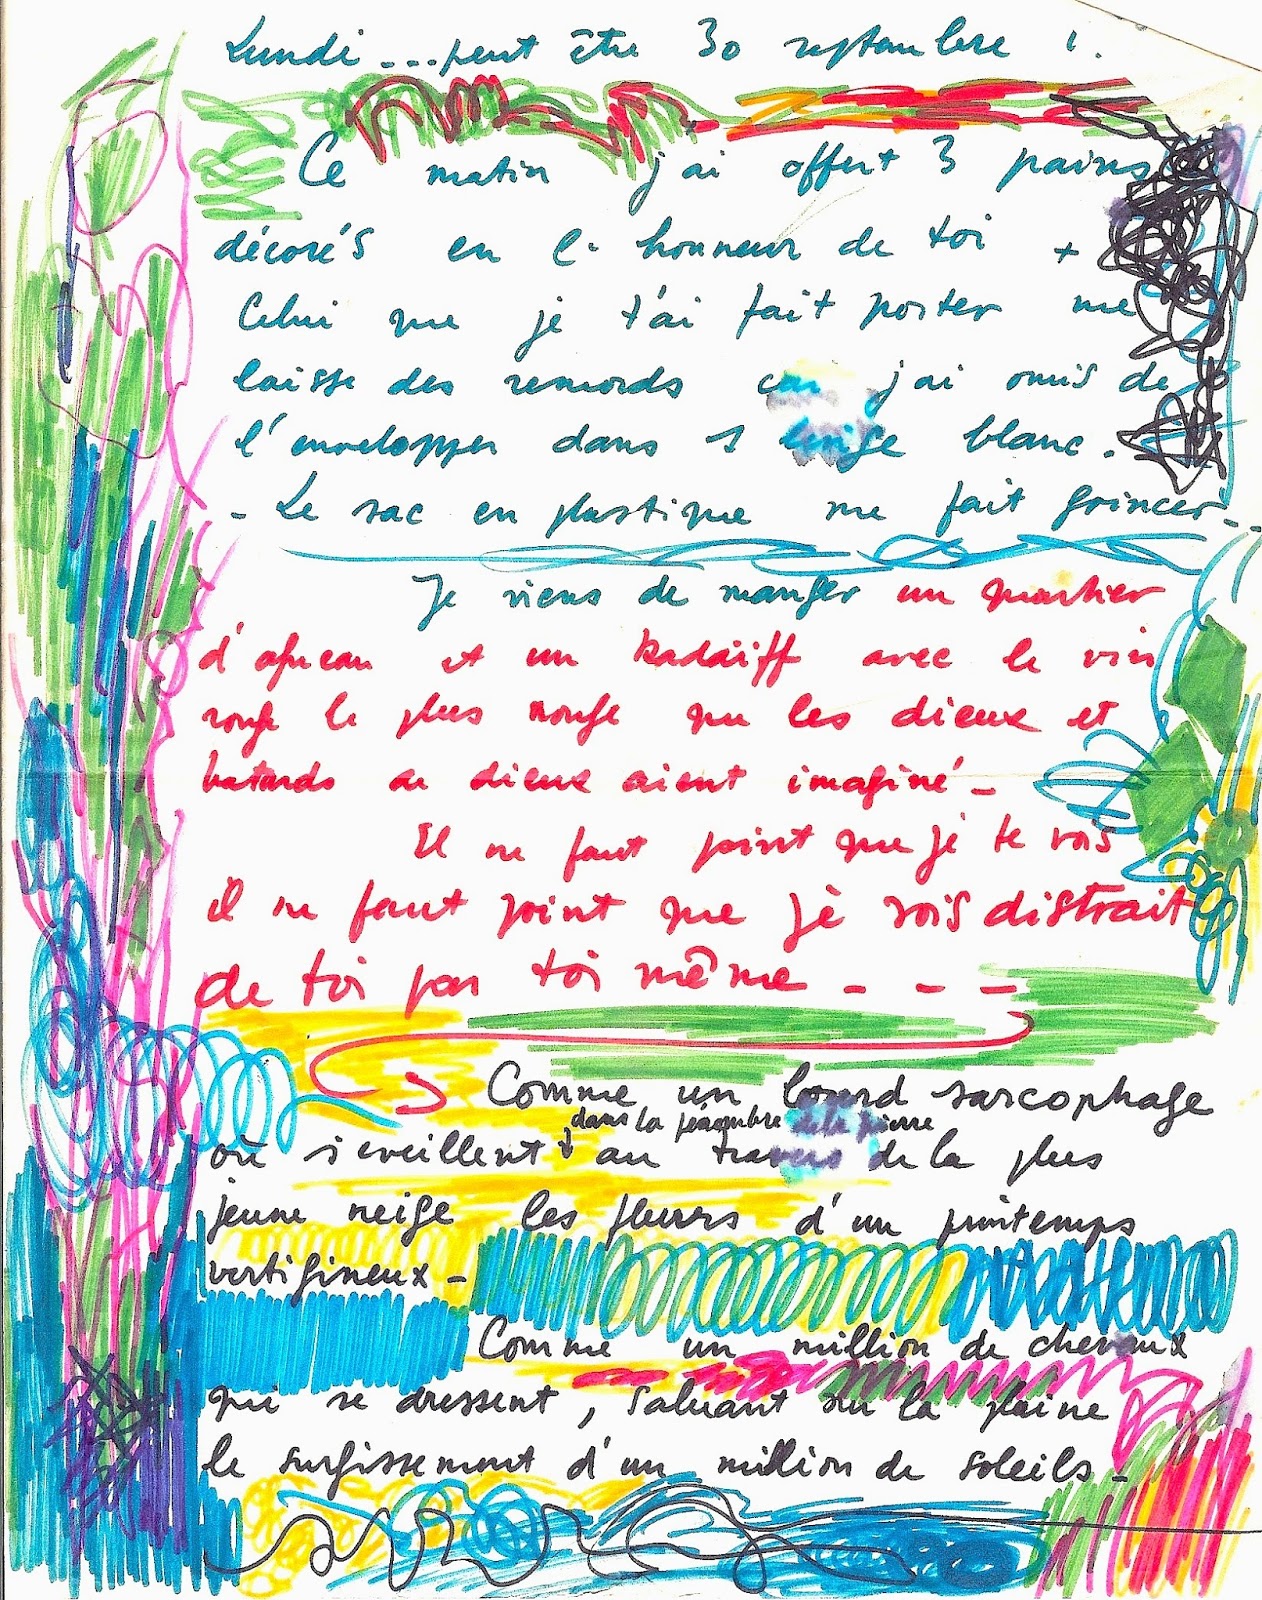 Lundi ... peut être 30 septembre
Ce matin j'ai offert 3 pains
décorés en l'honneur de toi +
Celui que je t'ai fait porter me
laisse des remords car j'ai omis de
l'envelopper dans 1 linge blanc.
- Le sac en plastique me fait grincer --
Je viens de manger un quartier
d'agneau et un kadaïff avec le vin
rouge le plus rouge que les dieux et
batards de dieux aient imaginé -
Il ne faut point que je te vois
il ne faut point que je sois distrait
de toi par toi même - - -
Comme un lourd sarcophage
dans la pénombre de la pierre
où s'eveillent au travers de la plus
jeune neige les fleurs d'un printemps
vertigineux -
Comme un million de chevaux
qui se dressent, saluant sur la plaine
le surgissement d'un million de soleils -